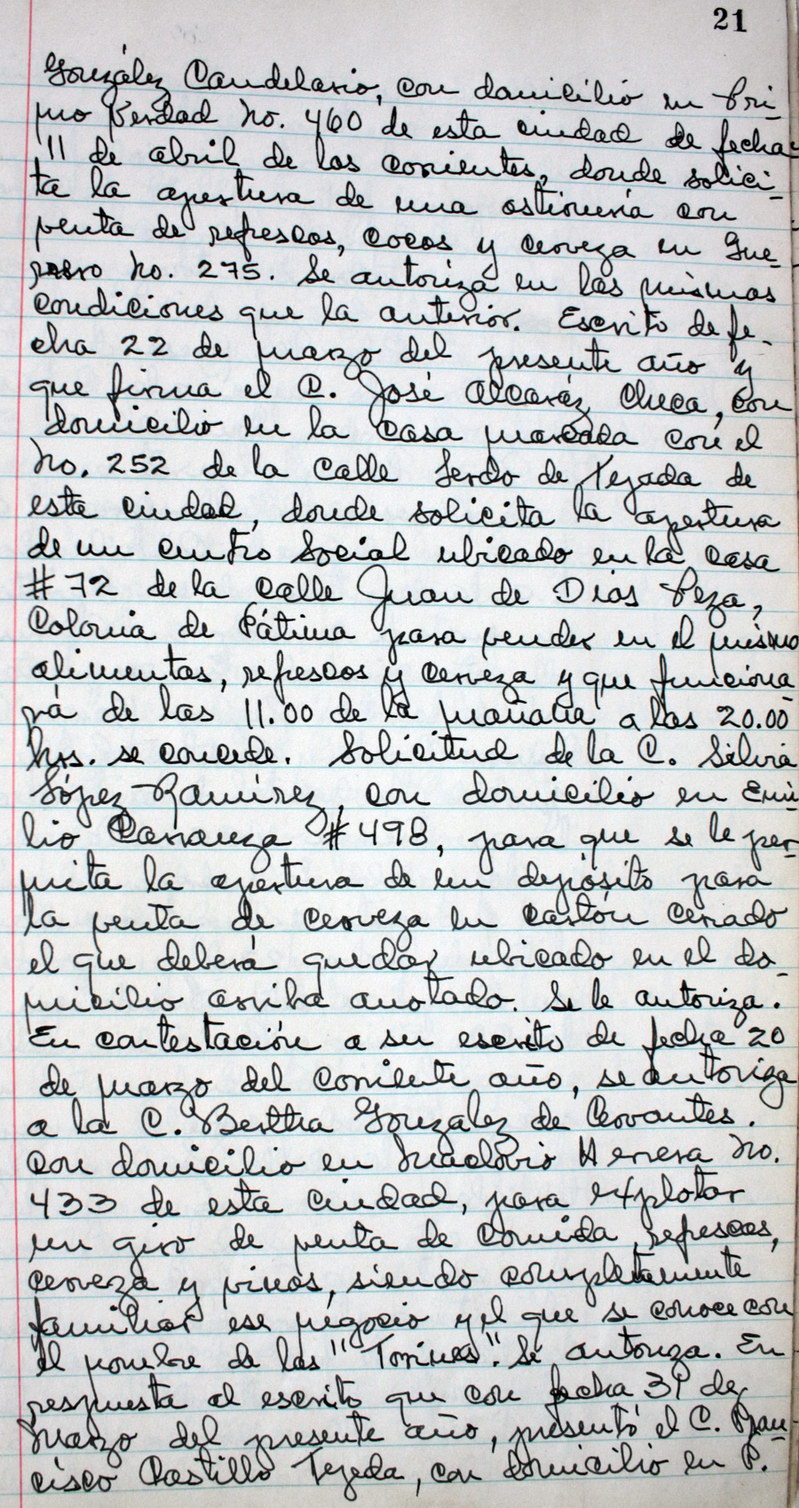 21
González Candelario, con domicilio en Pri-
mo Verdad No. 460 de esta ciudad de fecha
11 de abril de los corrientes, donde solici-
ta la apertura de una ostionería con
venta de refrescos, cocos y cerveza en Gue-
rrero No. 275. Se autoriza en las mismas
condiciones que la anterior. Escrito de fe-
cha 22 de marzo del presente año y
que firma el C. José Alcaráz Checa, con
domicilio en la casa marcada con el
No. 252 de la calle Lerdo de Tejada de
esta ciudad, donde solicita la apertura
de un centro Social ubicado en la casa
#72 de la calle Juan de Dios Peza,
Colonia de Fátima para vender en el mismo
alimentos, refrescos y cerveza y que funciona
rá de las 11.00 de la mañana a las 20.00
hrs. se concede. Solicitud de la C. Silvia
López Ramírez, con domicilio en Emi-
lio Carranza #498, para que se le per-
mita la apertura de un depósito para
la venta de cerveza en cartón cerrado
el que deberá quedar ubicado en el do-
micilio arriba anotado. Se le autoriza.
En contestación a su escrito de fecha 20
de marzo del corriente año, se autoriza
a la C. Bertha González de Cervantes.
con domicilio en Maclovio Herrera No.
433 de esta ciudad, para explotar
un giro de venta de comida, refrescos,
cerveza y vinos, siendo completamente
familiar ese negocio y el que se conoce con
el nombre de las "Torines". Se autoriza. En
respuesta al escrito que con fecha 31 de
Marzo del presente año, presentó el C. Fran
cisco Castillo Tejeda, con domicilio en P.